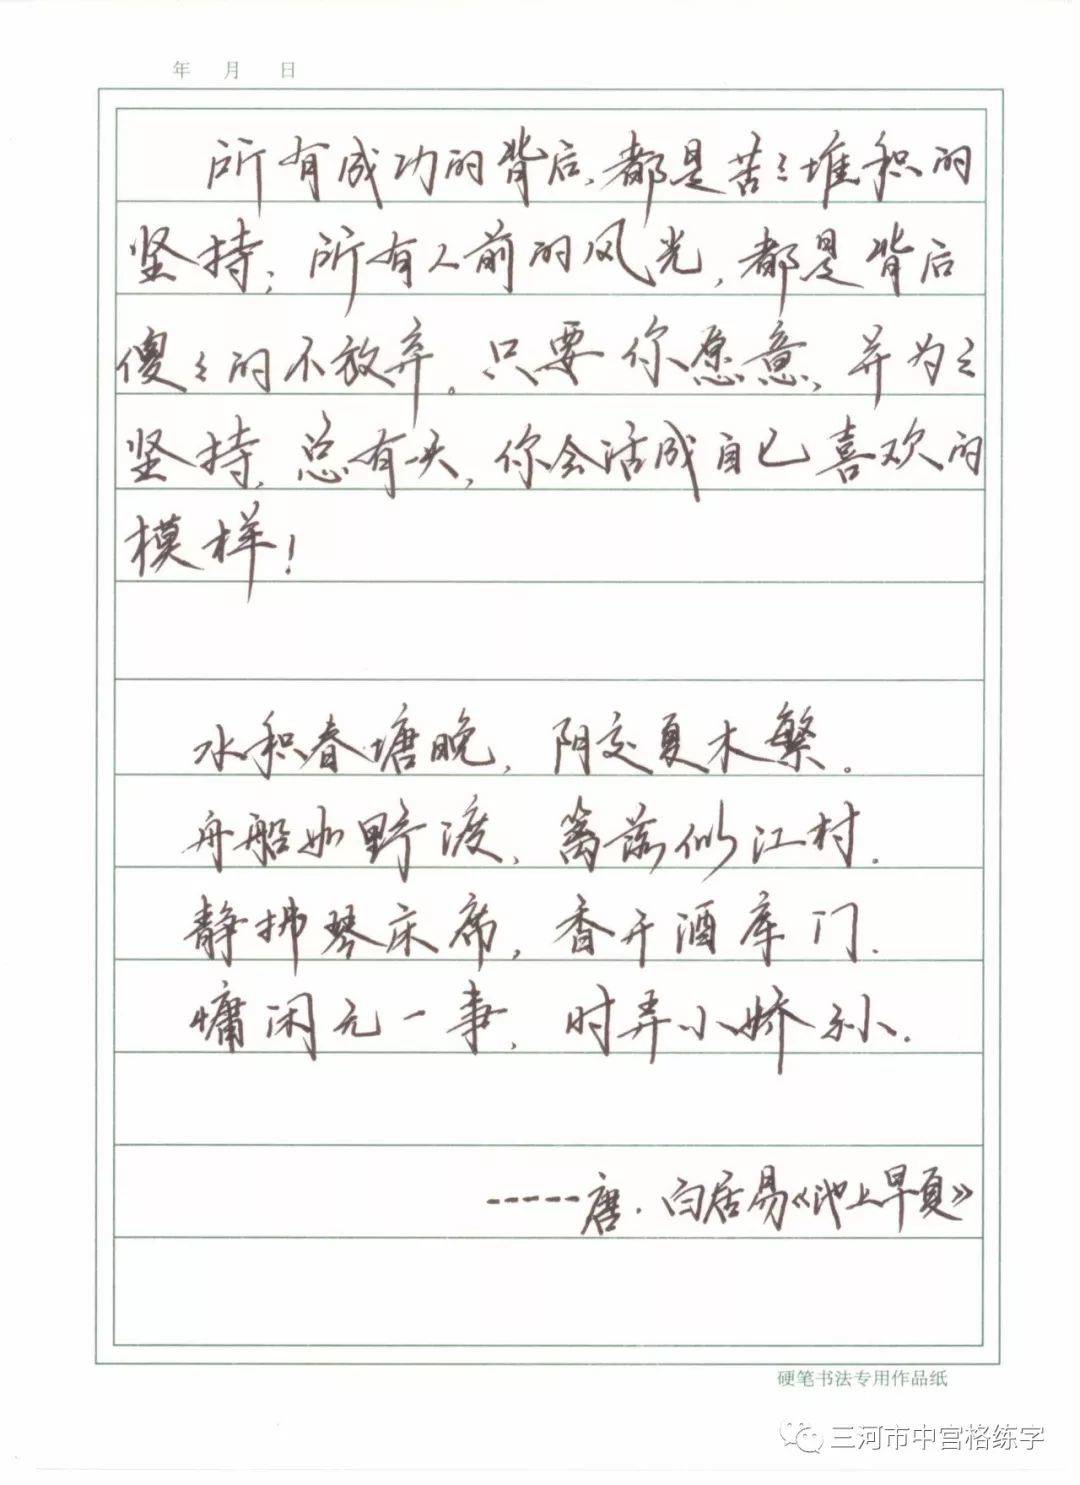 年 月 日
所有成功的背后,都是苦々堆积的
坚持;所有人前的风光,都是背后
傻々的不放弃。只要你愿意,并为之
坚持,总有天,你会活成自已喜欢的
模样!
水积春塘晚,阴交夏木繁。
舟船如野渡,篱落似江村.
静拂琴床席,香开酒库门.
慵闲无一事,时弄小娇孙.
-----唐.白居易《池上早夏》
硬笔书法专用作品纸
三河市中宫格练字